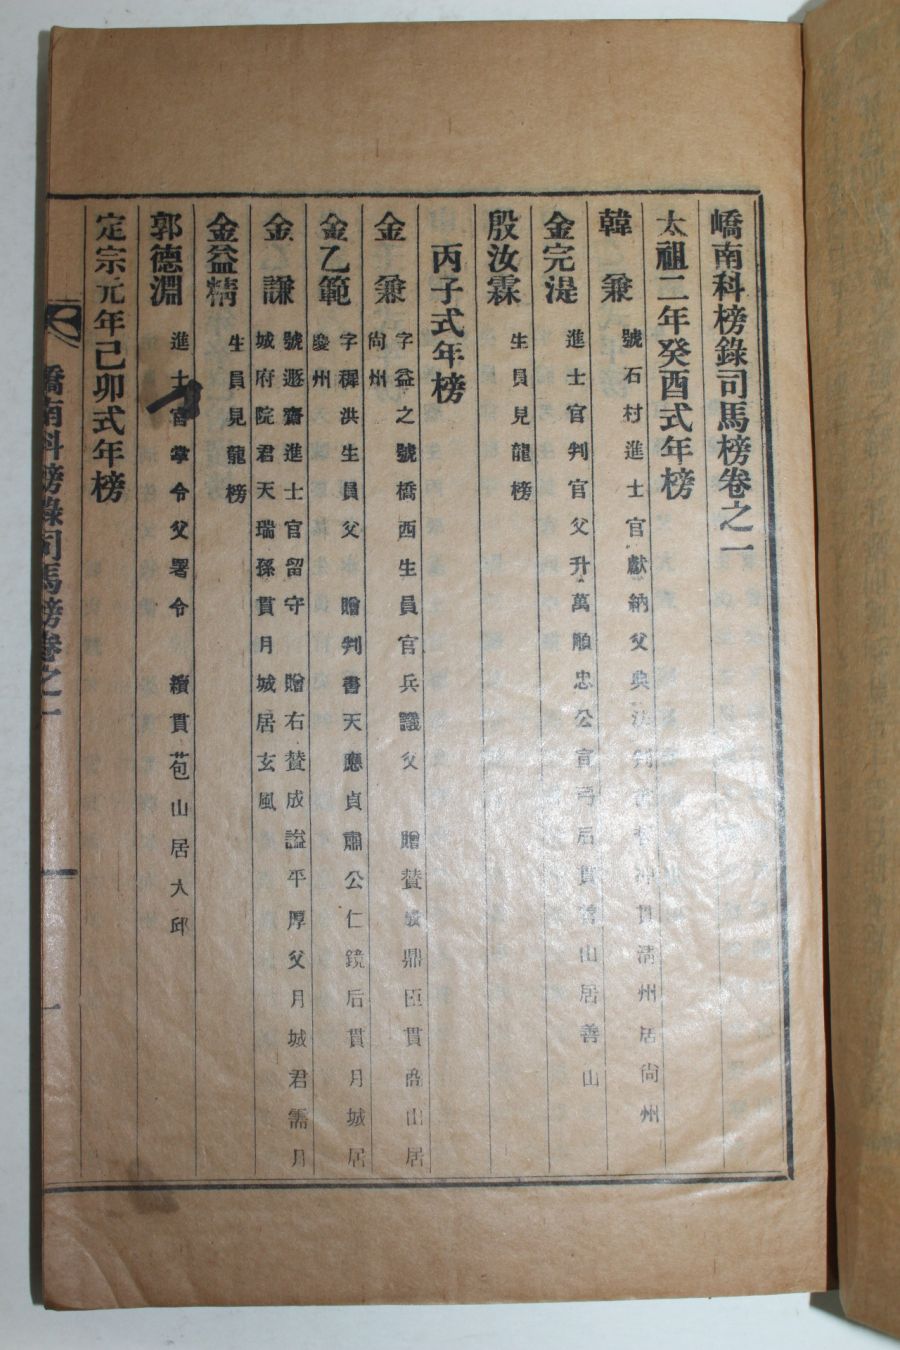 嶠南科榜錄司馬榜卷之一
太祖二年癸酉式年榜
韓兼 號石村進士官獻納父典法 貫淸州居尙州
金完湜 進士官判官父升萬順忠公宣弓后貫善山居善山
殷汝霖 生員見龍榜
丙子式年榜
金兼 字益之號橋西生員官兵議父 贈贊成鼎臣貫商山居
尙州
金乙範 字穉洪生員父 贈判書天應貞肅公仁鏡后貫月城居
慶州
金謙 號遯齋進士官留守 贈右贊成謚平厚父月城君需月
城府院君天瑞孫貫月城居玄風
金益精 生員見龍榜
郭德淵 進士官掌令父署令 續貫苞山居大邱
定宗元年己卯式年榜
嶠南科榜錄司馬榜卷之一
一